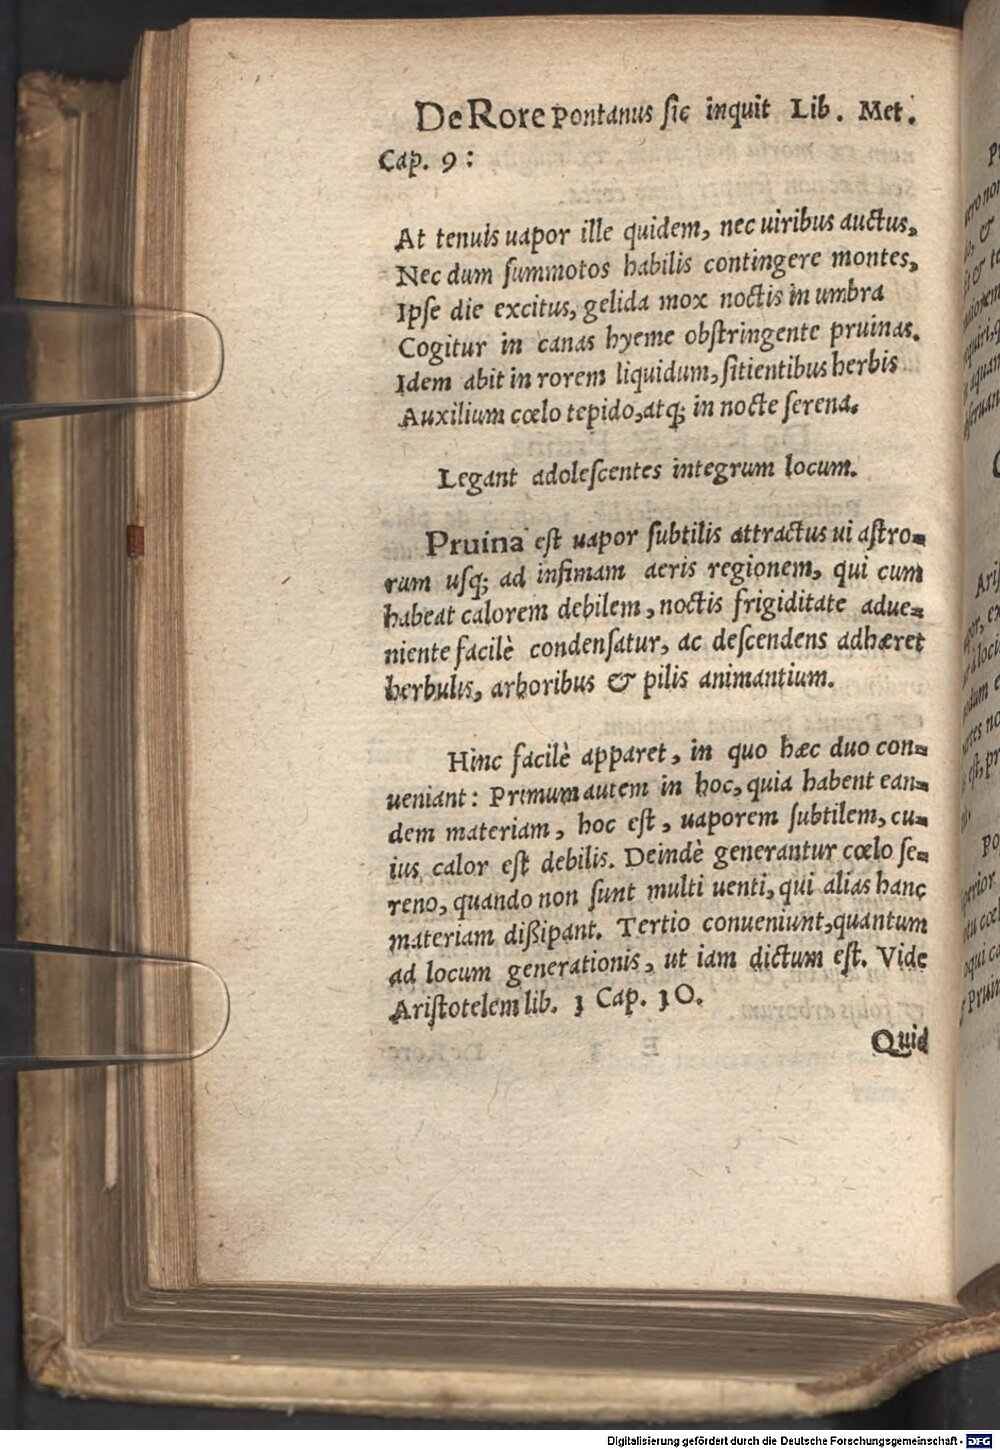 De Rore Pontanus ſic inquit Lib. Met.
Cap. 9:
At tenuis uapor ille quidem, nec uiribus auctus,
Nec dum ſummotos habilis contingere montes,
Ipſe die excitus, gelida mox noctis in umbra
Cogitur in canas hyeme obſtringente pruinas.
Idem abit in rorem liquidum, ſitientibus herbis
Auxilium cœlo tepido, atq; in nocte ſerena.
Legant adoleſcentes integrum locum.
Pruina eſt uapor ſubtilis attractus ui aſtro-
rum uſq; ad infimam aeris regionem, qui cum
habeat calorem debilem, noctis frigiditate adue-
niente facilè condenſatur, ac deſcendens adhæret
herbulis, arboribus & pilis animantium.
Hinc facilè apparet, in quo hæc duo con-
ueniant: Primum autem in hoc, quia habent ean-
dem materiam, hoc eſt, uaporem ſubtilem, cu-
ius calor eſt debilis. Deindè generantur cœlo ſe-
reno, quando non ſunt multi uenti, qui alias hanc
materiam diſsipant. Tertio conueniunt, quantum
ad locum generationis, ut iam dictum eſt. Vide
Ariſtotelem lib. 1 Cap. 10.
Quid
Digitalisierung gefördert durch die Deutsche Forschungsgemeinschaft - DFG